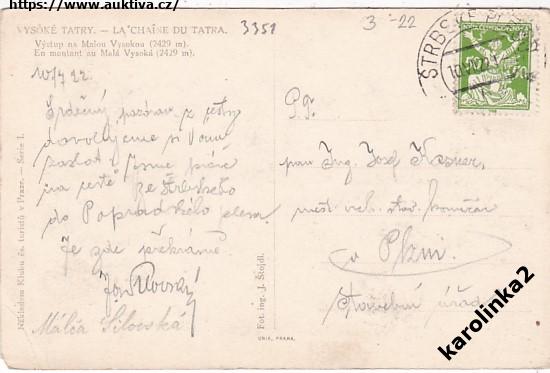 https://www.auktiva.cz/
VYSOKÉ TATRY. — LA CHAÎNE DU TATRA.
Výstup na Malou Vysokou (2429 m).
En montant au Malá Vysoká (2429 m).
3351
3 -22
ŠTRBSKÉ PLESO
10/7 22.
Srdečný pozdrav z cesty
dovolujeme si Vám
zaslat. Jsme právě
na cestě ze Štrbského
do Popradského plesa.
Je zde překrásně
Málča Šilovská
P. T.
pan Ing. Josef
měst. rch. stav. komisař
v Plzni
Stavební úřad
Nákladem Klubu čs. turistů v Praze. — Serie I.
Fot. ing. J. Štojdl.
UNIE, PRAHA.
karolinka2